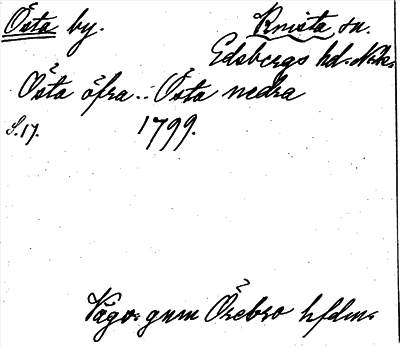 Östa by. Knista sn.
Edsbergs hd. Närke
Östa öfra.. Östa nedra
S.17. 1799.
Vägv: gnm Örebro hfdm: